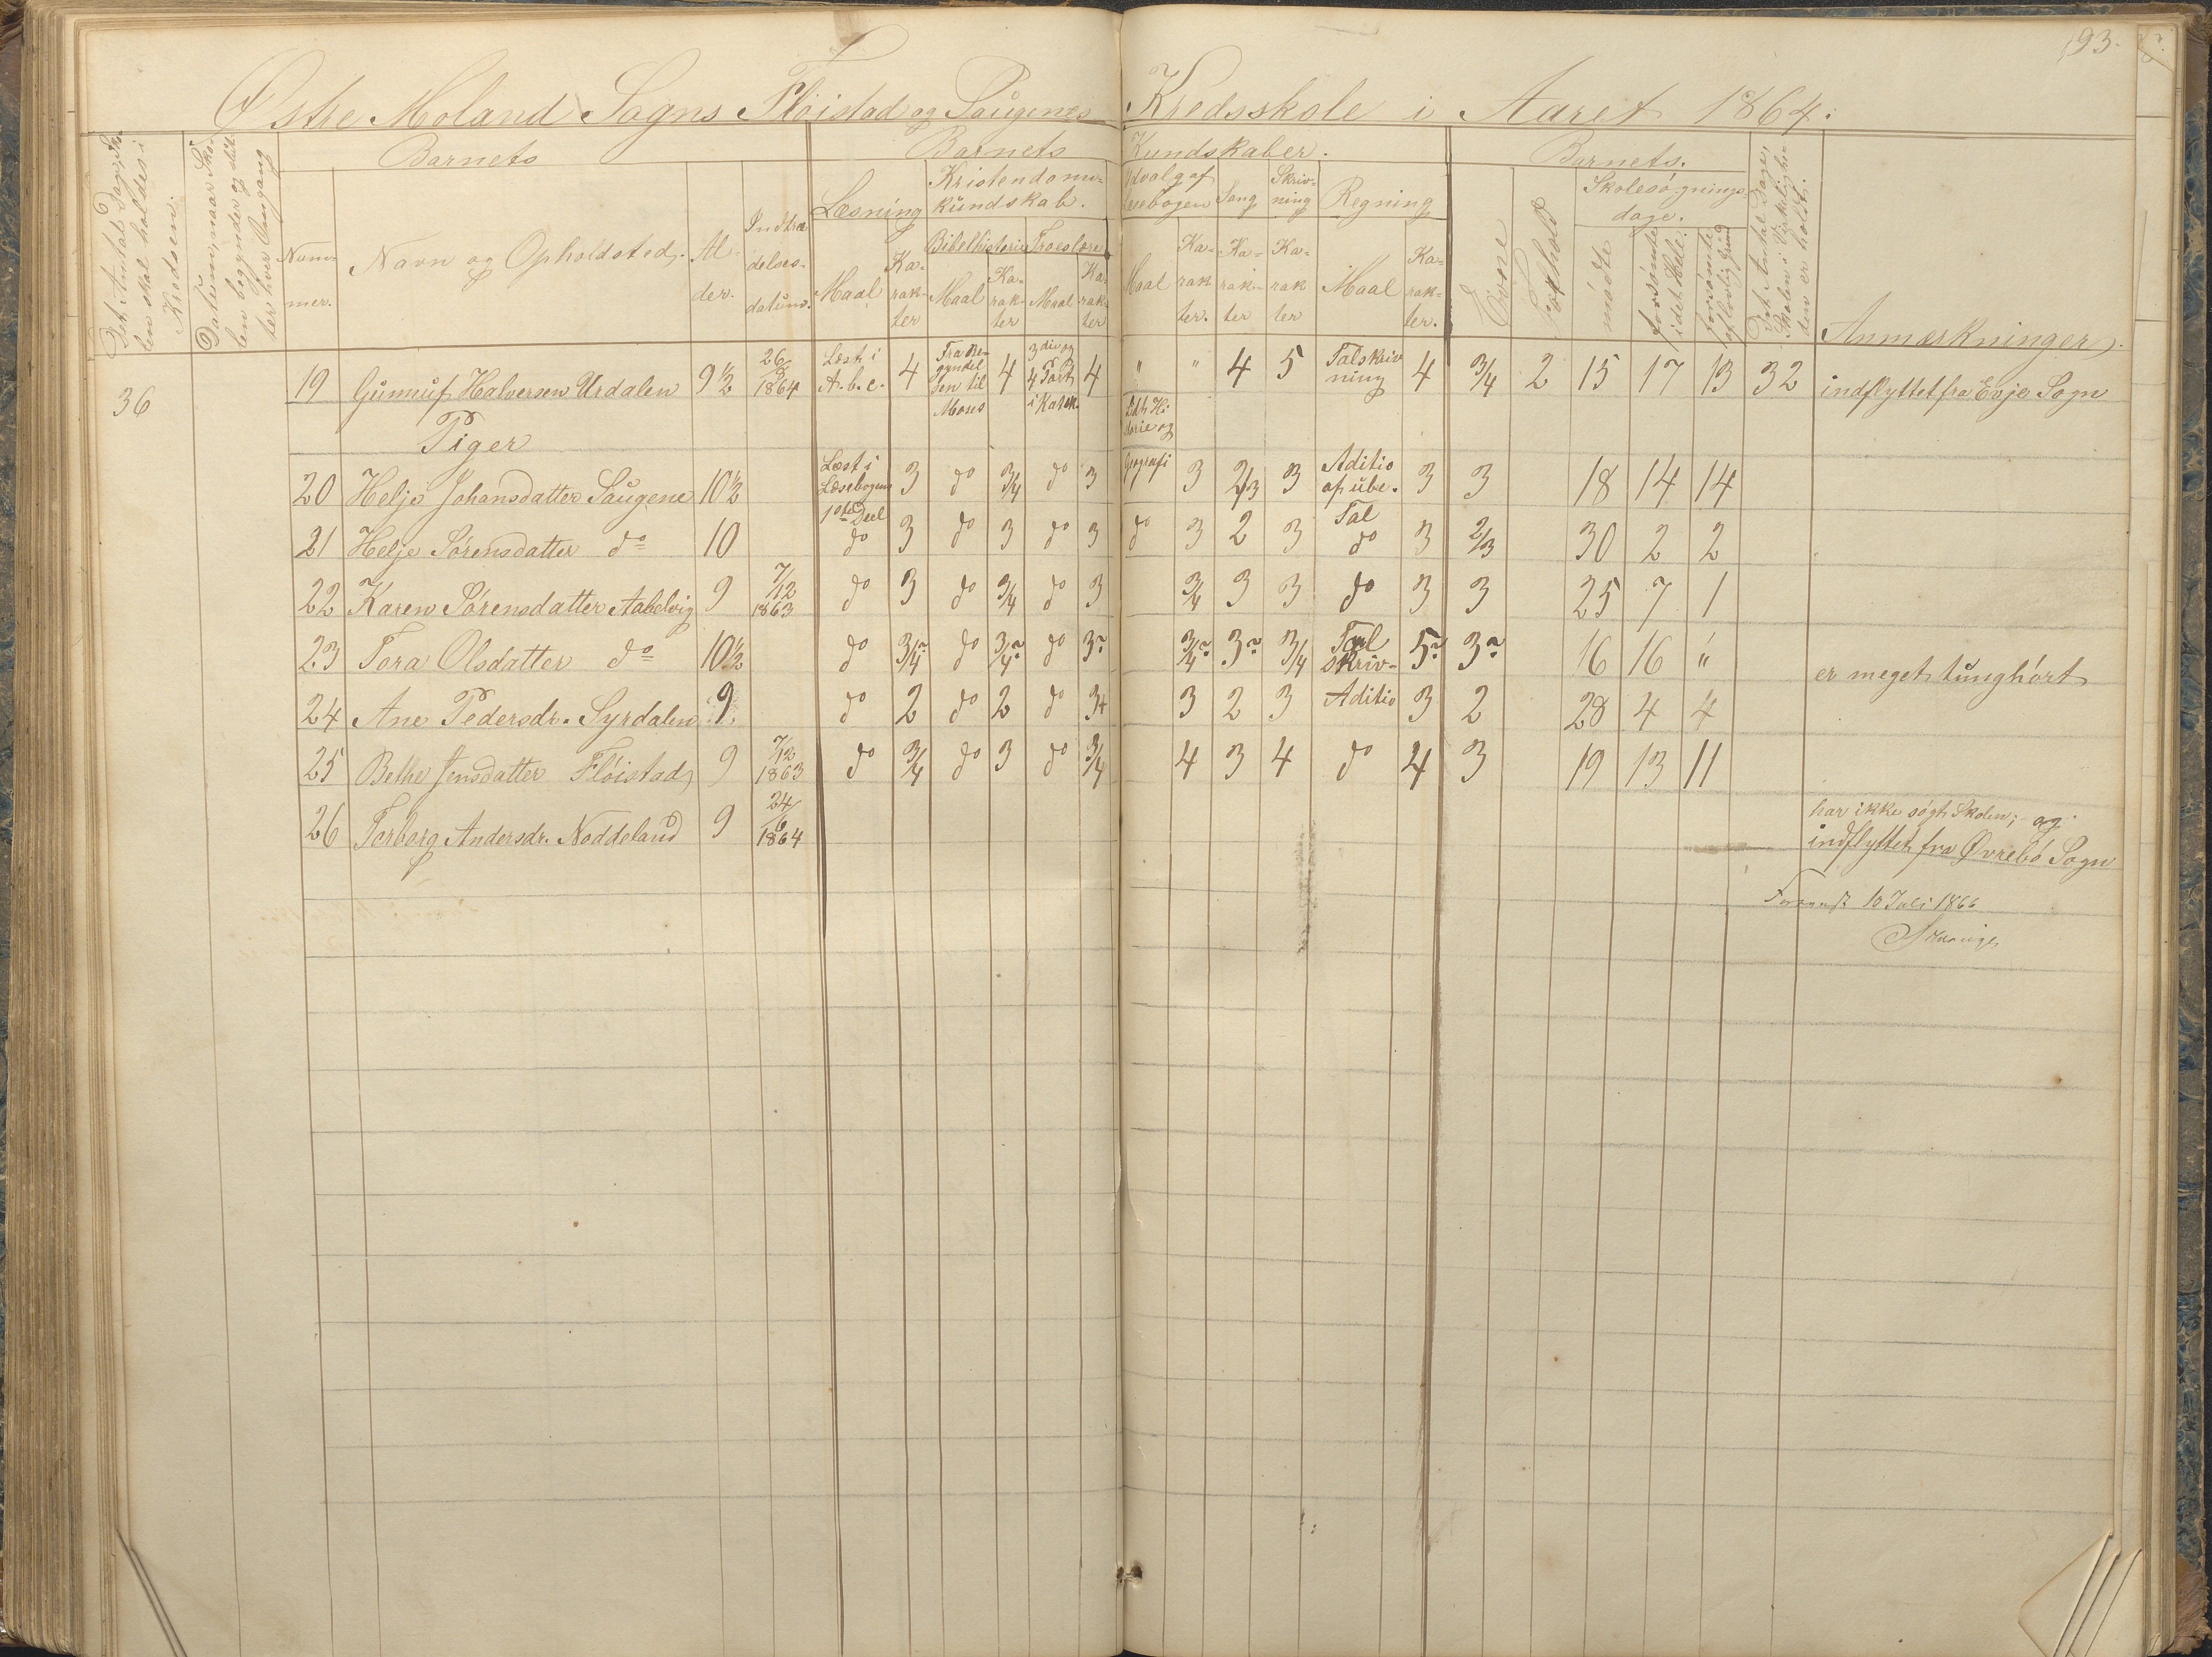 93.
Østre Moland Sogns Flöistad og Saugenes Kredsskole i Aaret 1864:
Det Antal Dage, Sko-
len skal holdes i
Kredsen.
Datum, naar Sko-
len begynder og slut-
ter hver Omgang
Barnets
Num-
mer.
Navn og Opholdsted.
Al-
der.
Indtræ-
delses-
datum.
Barnets Kundskaber.
Læsning
Maal
Ka-
rak-
ter
Kristendoms-
kundskab.
Bibelhistorie
Maal
Ka-
rak-
ter
Troeslære
Maal
Ka-
rak-
ter
Udvalg af
Læsebogen
Maal
Ka-
rak-
ter.
Sang
Ka-
rak-
ter
Skriv-
ning
Ka-
rak-
ter
Regning
Maal
Ka-
rak-
ter.
Barnets.
Evne
Forhold
Skolesögnings-
dage.
mödte
forsömte
i det Hele.
forsömte
af lovlig Grund
Det Antal Dage,
Skolen i Virkelighe-
den er holdt.
Anmærkninger.
36
19 Gunnuf Halversen Urdalen 9½ 26/8 1864 Læst i A.b.c. 4 Fra Be-
gyndel
sen til
Moses 4 3 div og
4 Part
i Katek. 4 " " 4 5 Talskriv
ning 4 3/4 2 15 17 13 32 indflyttet fra Evje Sogn
Piger
20 Helje Johansdatter Saugene 10½ Læst i
Læsebogens
1ste Deel 3 do 3/4 do 3 Geografi 3 2/3 3 Aditio
af ube.
Tal 3 3 18 14 14
21 Helje Sörensdatter do 10 do 3 do 3 do 3 do 3 2 3 do 3 2/3 30 2 2
22 Karen Sörensdatter Aabelvig 9 7/12 1863 do 3 do 3/4 do 3 3/4 3 3 do 3 3 25 7 1
23 Tora Olsdatter do 10½ do 3/4 do 3/4 do 3 3/4 3 3/4 Tal
skriv- 5 3 16 16 " er meget tunghört
24 Ane Pedersdr. Syrdalen 9 do 2 do 2 do 3+ 3 2 3 Aditio 3 2 28 4 4
25 Bethe Jensdatter Flöistad 9 7/12 1863 do 3/4 do 3 do 3/4 4 3 4 do 4 3 19 13 11
26 Torborg Andersdr. Noddeland 9 24/6 1864 har ikke sögt Skolen; og
indflyttet fra Øvrebö Sogn
10 Juli 1866